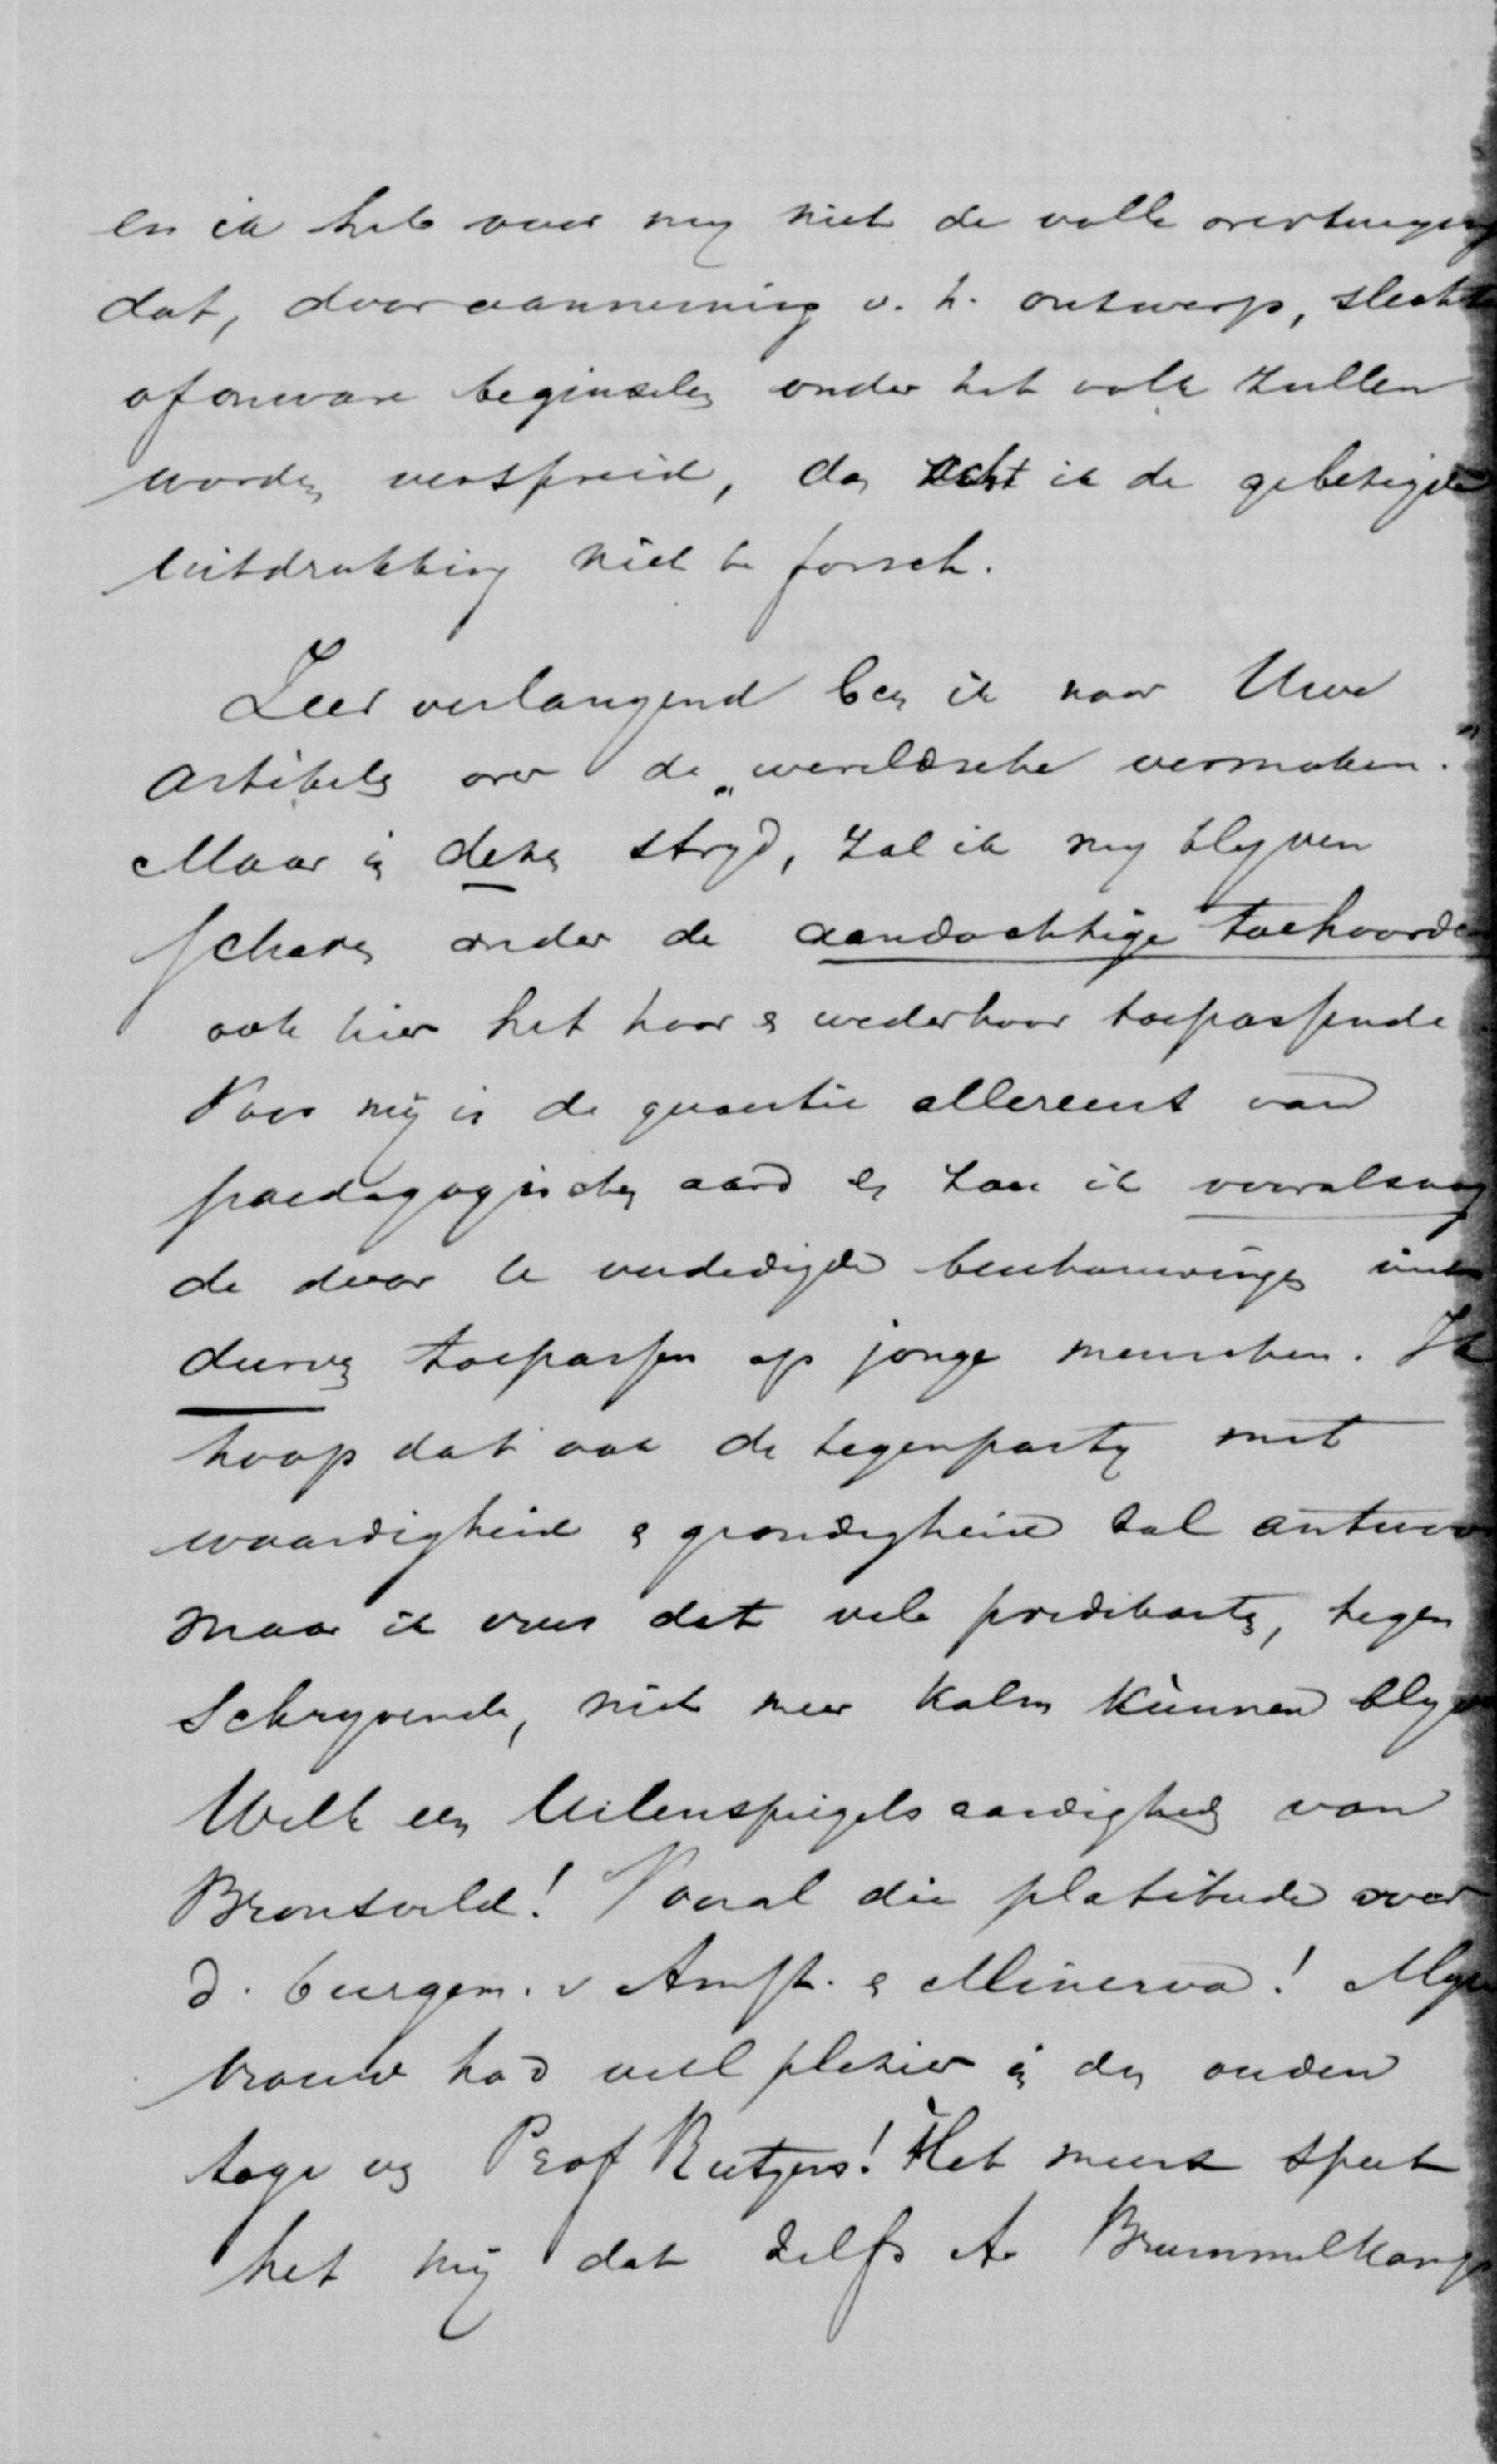 en ik heb voor my niet de volle overtuiging
dat, door aanneming v. h. ontwerp, slechte
of onware beginselen onder het volk zullen
worden verspreid, dan acht ik de gebezigde
uitdrukking niet te forsch.
Zeer verlangend ben ik naar Uwe
artikels over de „wereldsche vermaken."
Maar in dezen stryd, zal ik my blyven
scharen onder de aandachtige toehoorders
ook hier het hoor & wederhoor toepassende
Voor mij is de quaestie allereerst van
paedagogischen aard en zou ik vooralsnog
de door U verdedigde beschouwingen niet
durven toepassen op jonge menschen. Ik
hoop dat ook de tegenparty met
waardigheid & grondigheid zal antwoo
maar ik vrees dat vele predikanten, tegen
schryvende, niet meer kalm kunnen blyven
Welk een Uilenspiegels aardigheid van
Bronsveld! Vooral die platitude over
d. burgem. v Amst. & Minerva! Myn
vrouw had veel plezier in den ouden
toga van Prof Rutgers! Het meest speet
het mij dat zelfs A. Brummelkamp